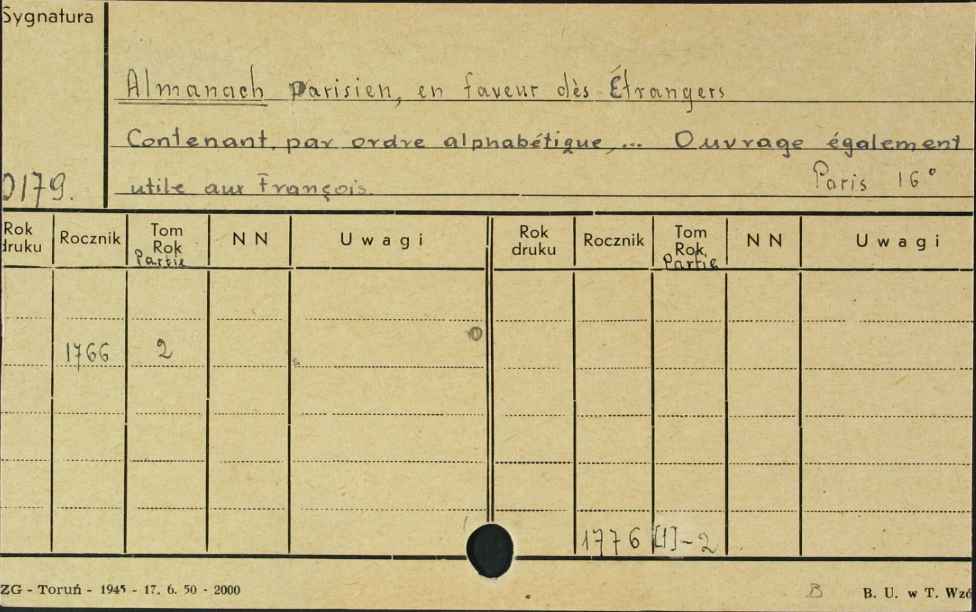 Sygnatura
Almanach parisien, en faveur dès Étrangers
Contenant par ordre alphabétique,... Ouvrage également
utile aux François. Paris 16°
0179.
Rok druku Rocznik Tom Rok Partie N N Uwagi Rok druku Rocznik Tom Rok Partie N N Uwagi
1766 2
1776 [1]-2
ZG - Toruń - 1945 - 17. 6. 50 - 2000 B B. U. w T.